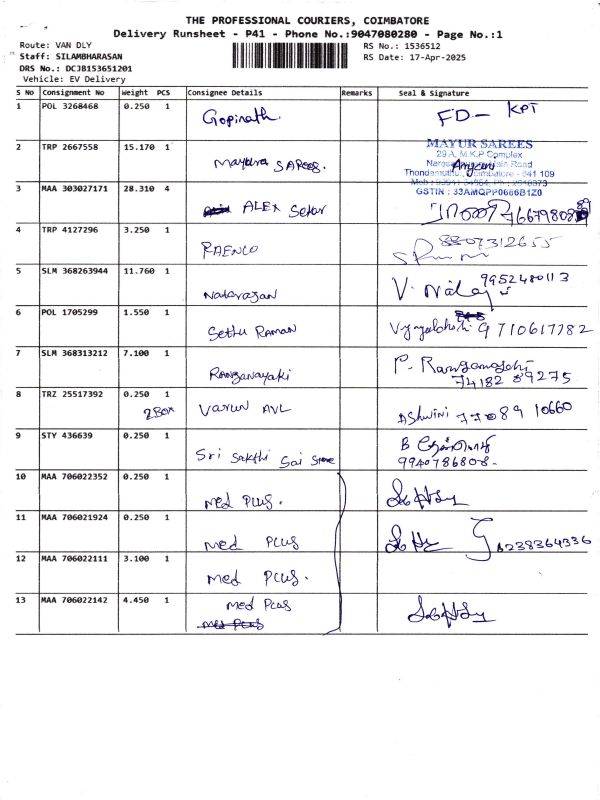 THE PROFESSIONAL COURIERS, COIMBATORE
Delivery Runsheet - P41 - Phone No.:9047080280 - Page No.:1
Route: VAN DLY
RS No.: 1536512
Staff: SILAMBHARASAN
RS Date: 17-Apr-2025
DRS No.: DCJB153651201
Vehicle: EV Delivery
S No Consignment No Weight PCS Consignee Details Remarks Seal & Signature
1 POL 3268468 0.250 1 Gopinath. FD- KPT
2 TRP 2667558 15.170 1 Mayura SAREES.
MAYUR SAREES
29 A, M.K.P Complex
Main Road
Coimbatore - 641 109
GSTIN : 33AMQPP0666B1Z0
3 MAA 303027171 28.310 4 ALEX Sekar
4 TRP 4127296 3.250 1 RAENCO 8807312655
5 SLM 368263944 11.760 1 Natarajan V. 9952480113
6 POL 1705299 1.550 1 Sethu RAMAN 9710617782
7 SLM 368313212 7.100 1 Ranganayaki P. Ranganayaki
74182 89275
8 TRZ 25517392 0.250 1 VARUN AVL Ashwini 77089 10660
2 BOX
9 STY 436639 0.250 1 Sri Sakthi Sai Store B
9940786808-
10 MAA 706022352 0.250 1 med PLUS.
11 MAA 706021924 0.250 1 med PLUS 6238364336
12 MAA 706022111 3.100 1 med PLUS.
13 MAA 706022142 4.450 1 med PLUS
med PLUS